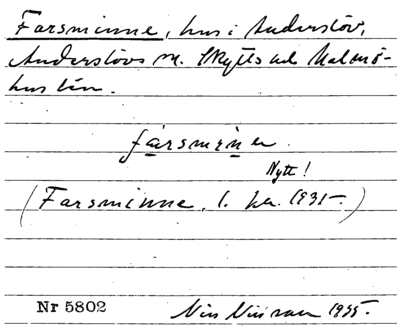 Farsminne, hus i Anderslöv,
Anderslövs sn. Skytts hd Malmö-
hus län.
farsminə
Nytt!
(Farsminne, l. 1935)
Nr 5802 Nils Nilsson 1935.